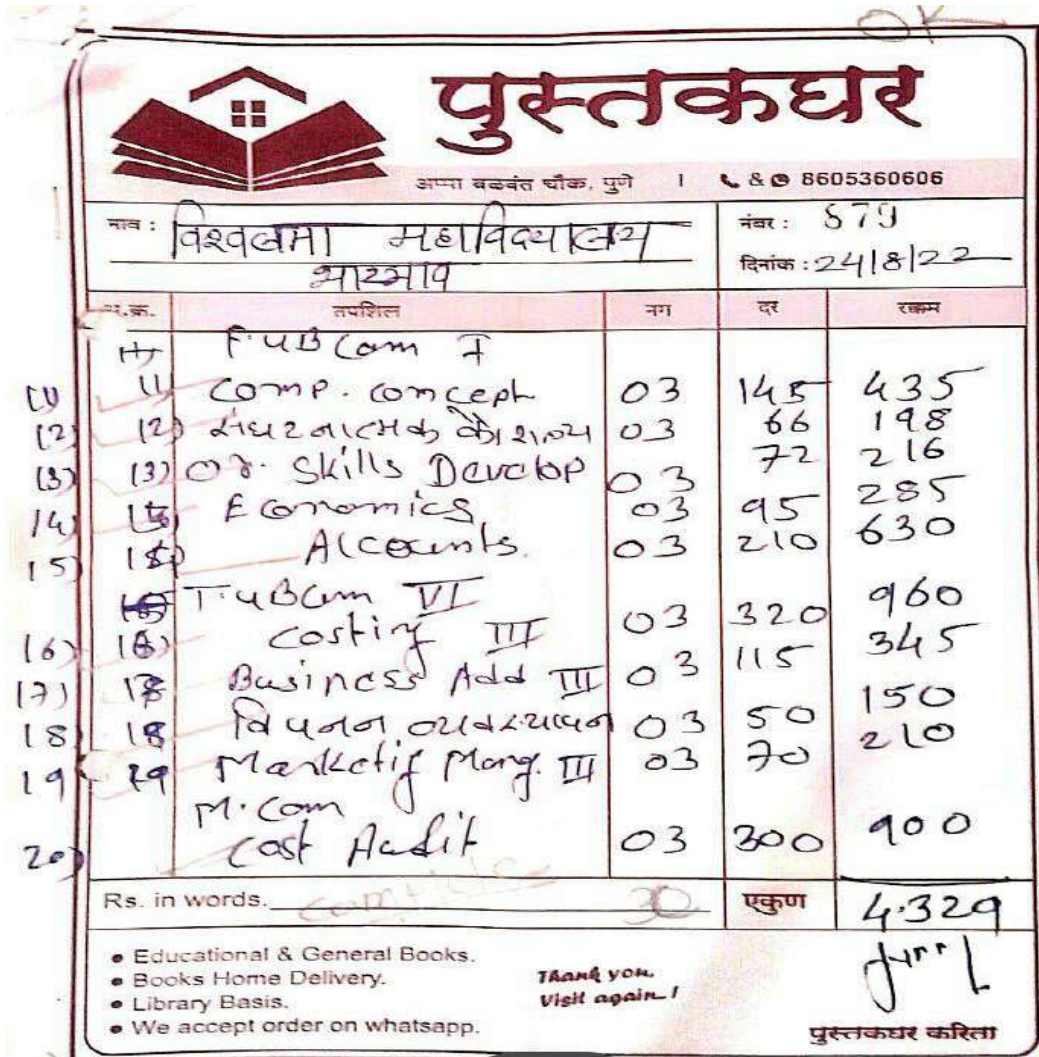 OK
पुस्तकघर
अप्पा बळवंत चौक, पुणे । & 8605360606
नाव : महाविद्यालय
नंबर : 579
दिनांक : 24/8/22
अ.क्र. तपशिल नग दर रक्कम
F.YBCom I
(1) (1) Comp. concept 03 145 435
(2) (2) संघटनात्मक कौशल्य 03 66 198
(3) (3) Or. Skills Develop 03 72 216
(4) Economics 03 95 285
(5) Accounts. 03 210 630
T.YBCom VI
(6) (6) Costing III 03 320 960
(7) Business Add III 03 115 345
(8) विपनन व्यवस्थापन 03 50 150
19 Marketig Mang. III 03 70 210
M.Com
20) Cost Audit 03 300 900
Rs. in words. 30 एकुण 4.329
• Educational & General Books.
• Books Home Delivery.
• Library Basis.
• We accept order on whatsapp.
Thank you.
Visit again !
पुस्तकघर करिता